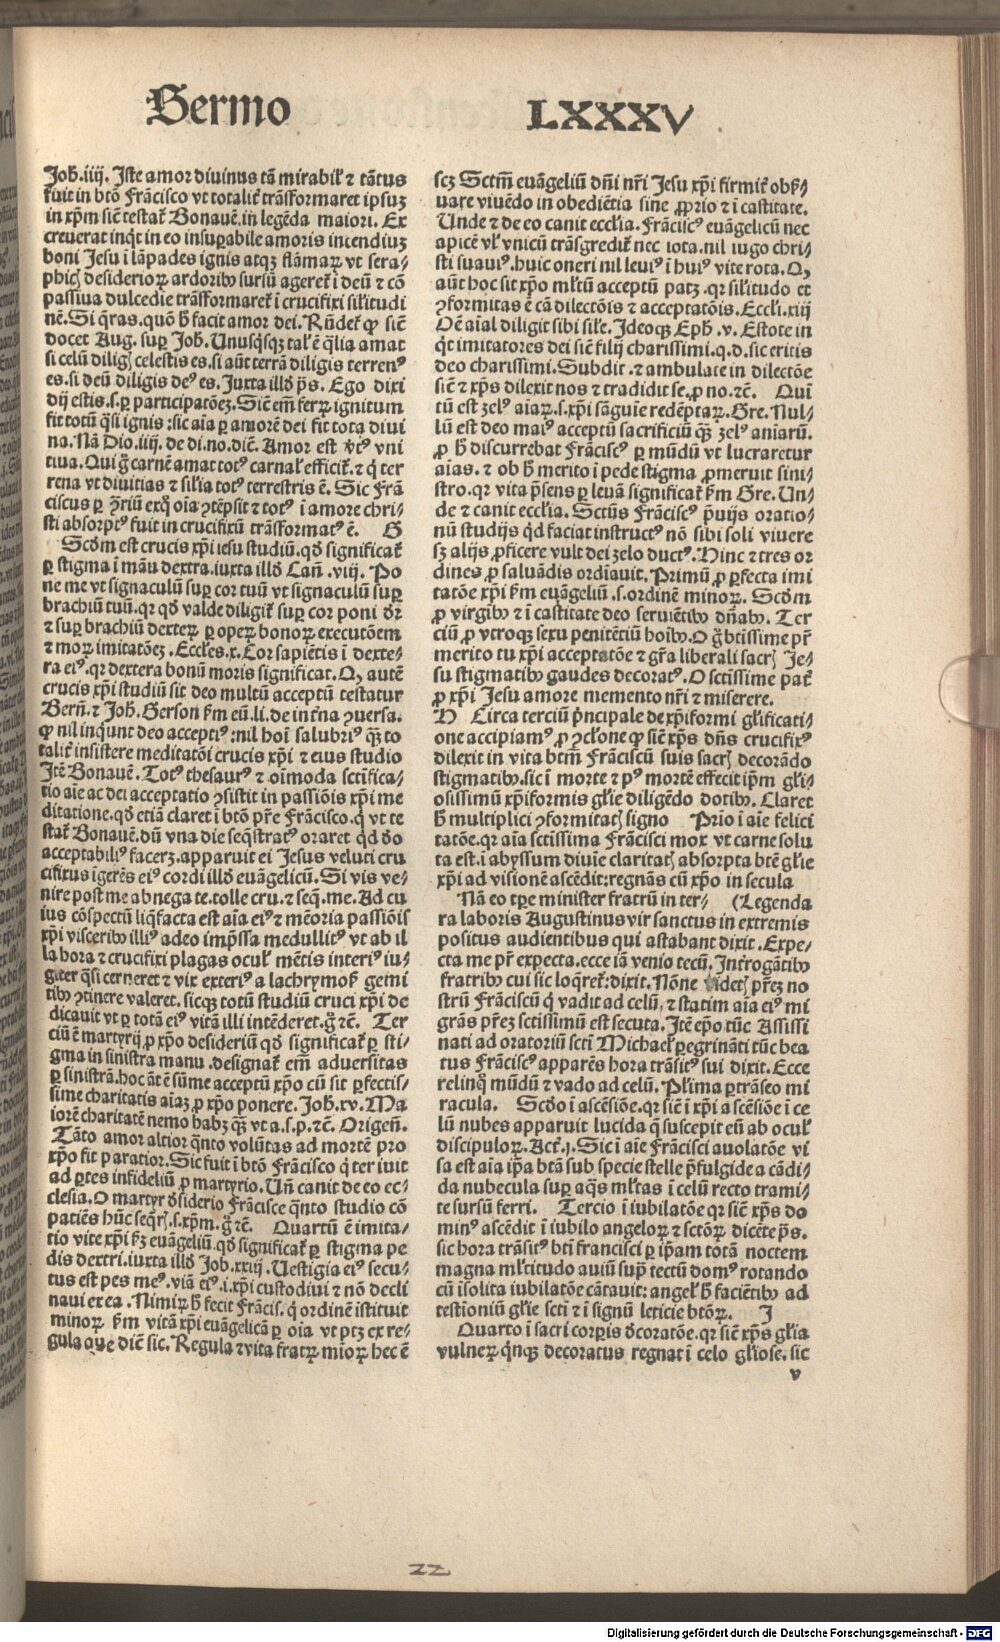 Sermo LXXXV
Joh̄.iiij. Iste amor divinus tā mirabil̄ ⁊ tātus
fuit in btō Frācisco vt totalit̄ trāsformaret ipsuꝫ
in xp̄m sic̄ testat̄ Bonauē. in legēda maiori. Ex
creuerat inq̇t in eo insuꝑabile amoris incendiuꝫ
boni Jesu i lāpades ignis atqꝫ flāmaꝝ vt sera⸗
phicꝭ desiderioꝝ ardoribꝰ sursū ageret̄ ī deū ⁊ cō
passiua dulcedie trāsformaret̄ ī crucifixi sil̄itudi
nē. Si q̄ras. quō h̄ facit amor dei. Rn̄det̄ ꝙ sic̄
docet Aug. suꝑ Joh̄. Unusq̇sqꝫ tal̄ ē q̄lia amat
si celū diligꝭ celestis es. si aūt terrā diligis terrenꝰ
es. si deū diligis deꝰ es. Juxta illd̄ ps̄. Ego dixi
dij estis. s. ꝑ participatōeꝫ. Sic̄ em̄ ferꝝ ignitum
fit totū q̄si ignis: sic aīa ꝑ amorē dei fit tota diui
na. Nā Dio. iiij. de di. no. dic̄. Amor est v̄tꝰ vni
tiua. Qui g̊ carnē amat totꝰ carnal̄ efficit̄. ⁊ q̇ ter
rena vt diuitias ⁊ sil̄ia totꝰ terrestris ē. Sic Frā
ciscus ꝑ ꝯtriū exq̊ oīa ꝯtēpsit ⁊ totꝰ ī amore chri⸗
sti absorptꝰ fuit in crucifixū trāsformatꝰ ē. G
Scd̄m est crucis xp̄i iesu studiū. qd̄ significat̄
ꝑ stigma ī manu dextra. iuxta illd̄ Can̄ .viij. Po
ne me vt signaculū suꝑ cor tuū vt signaculū suꝑ
brachiū tuū. qr qd̄ valde diligit̄ suꝑ cor poni dr̄
⁊ suꝑ brachiū dexteꝝ ꝑ opeꝝ bonoꝝ executōem
⁊ moꝝ imitatōeꝫ. Eccl̄es. x. Cor sapiētis ī dexte⸗
ra eiꝰ. qr dextera bonū moris significat. Qꝫ autē
crucis xp̄i studiū sit deo multū acceptū testatur
Bern̄. ⁊ Joh̄. Gerson ẜm eū. li. de int̄na ꝯuersa.
ꝙ nil inq̇unt deo acceptiꝰ: nil hoī salubriꝰ q̄ꝫ to
talit̄ insistere meditatōi crucis xp̄i ⁊ eius studio
Itē Bonauē. Totꝰ thesaurꝰ ⁊ oīmoda sctīfica⸗
tio aīe ac dei acceptatio ꝯsistit in passiōis xp̄i me
ditatione. qd̄ etiā claret ī btō pr̄e Frācisco. q̇ vt te
stat̄ Bonauē. dū vna die seq̄stratꝰ oraret qd̄ dō
acceptabiliꝰ faceꝫ. apparuit ei Jesus veluti cru
cifixus īgerēs eiꝰ cordi illd̄ euāgelicū. Si vis ve⸗
nire post me abnega te. tolle cru. ⁊ seq̄. me. Ad cu
ius cōspectū liq̄facta est aīa eiꝰ ⁊ mēoria passiōis
xp̄i visceribꝰ illiꝰ adeo imp̄ssa medullitꝰ vt ab il
la hora ⁊ crucifixi plagas ocul̄ mētis interiꝰ iu⸗
giter q̄si cerneret ⁊ vix exteriꝰ a lachrymoẜ gemi
tibꝰ ꝯtinere valeret. sicqꝫ totū studiū cruci xp̄i de
dicauit vt ꝑ totā eiꝰ vitā illi intēderet. g̊ ⁊c̄. Ter
ciū ē martyrij ꝓ xp̄o desideriū qd̄ significat̄ ꝑ sti⸗
gma in sinistra manu. designat̄ em̄ aduersitas
ꝑ sinistrā. hoc āt ē sūme acceptū xp̄o cū sit ꝑfectis⸗
sime charitatis aīaꝫ ꝓ xp̄o ponere. Joh̄. xv. Ma
iorē charitatē nemo habꝫ q̄ꝫ vt a. s. p. ⁊c̄. Origen̄.
Tāto amor altior q̄nto volūtas ad mortē pro
xp̄o fit paratior. Sic fuit ī btō Frācisco q̇ ter iuit
ad ꝑtes infideliū ꝓ martyrio. Un̄ canit de eo ec⸗
clesia. O martyr d̄siderio Frācisce q̄nto studio cō
patiēs hūc seq̄rꝭ. s. xp̄m. g̊ ⁊c̄. Quartū ē imita⸗
tio vite xp̄i ẜꝫ euāgeliū. qd̄ significat̄ ꝑ stigma pe
dis dextri. iuxta illd̄ Job. xxiij. Uestigia eiꝰ secu⸗
tus est pes meꝰ. viā eiꝰ. i. xp̄i custodiui ⁊ nō decli
naui ex ea. Nimiꝝ h̄ fecit Frācis. q̇ ordinē īstituit
minoꝝ ẜm vitā xp̄i euāgelicā ꝑ oīa vt ptꝫ ex re⸗
gula que dic̄ sic. Regula ⁊ vita fratꝝ mioꝝ hec ē
scꝫ Sctm̄ euāgeliū dn̄i nr̄i Jesu xp̄i firmit̄ obẜ⸗
uare viuēdo in obediētia sine ꝓprio ⁊ ī castitate.
Unde ⁊ de eo canit eccl̄ia. Frāciscꝰ euāgelicū nec
apicē vl̄ vnicū trāsgredit̄ nec iota. nil iugo chri⸗
sti suauiꝰ. huic oneri nil leuiꝰ ī huiꝰ vite rota. Qꝫ
aūt hoc sit xp̄o ml̄tū acceptū patꝫ. qr sil̄itudo et
ꝯformitas ē cā dilectōis ⁊ acceptatōis. Eccl̄i. xiij
Oē aīal diligit sibi sil̄e. Ideoqꝫ Eph̄. v. Estote in
q̇t imitatores dei sic̄ filij charissimi. q. d. sic eritis
deo charissimi. Subdit. ⁊ ambulate in dilectōe
sic̄ ⁊ xp̄s dilexit nos ⁊ tradidit se. ꝓ no. ⁊c̄. Qui
tū est zelꝰ aīaꝝ. s. xp̄i sāguīe redēptaꝝ. Gre. Nul⸗
lū est deo maiꝰ acceptū sacrificiū q̄ꝫ zelꝰ aniarū.
ꝓ h̄ discurrebat Frāciscꝰ ꝑ mūdū vt lucraretur
aīas. ⁊ ob h̄ merito ī pede stigma ꝓmeruit sini⸗
stro. qr vita p̄sens ꝑ leuā significat̄ ẜm Gre. Un⸗
de ⁊ canit eccl̄ia. Sctūs Frāciscꝰ p̄uijs oratio⸗
nū studijs qd̄ faciat instructꝰ nō sibi soli viuere
sꝫ alijs ꝓficere vult dei zelo ductꝰ. Hinc ⁊ tres or
dines ꝓ saluādis ordīauit. Primū ꝓ ꝑfecta imi
tatōe xp̄i ẜm euāgeliū. s. ordinē minoꝝ. Scd̄m
ꝓ virgībꝰ ⁊ ī castitate deo seruiētibꝰ dn̄abꝰ. Ter
ciū ꝓ vtroqꝫ sexu penitētiū hoībꝰ. O g̊ btīssime pr̄
merito tu xp̄i acceptatōe ⁊ gr̄a liberali sacrꝭ Je⸗
su stigmatibꝰ gaudes decoratꝰ. O sctīssime pat̄
ꝓ xp̄i Jesu amore memento nr̄i ⁊ miserere.
H Circa terciū p̄ncipale de xp̄iformi gl̄ificati⸗
one accipiamꝰ ꝓ ꝯcl̄one ꝙ sic̄ xp̄s dn̄s crucifixꝰ
dilexit in vita btm̄ Frāciscū suis sacrꝭ decorādo
stigmatibꝰ. sic ī morte ⁊ pꝰ mortē effecit ip̄m gl̄i⸗
osissimū xp̄iformis gl̄ie diligēdo dotibꝰ. Claret
h̄ multiplici ꝯformitatꝭ signo Prio ī aīe felici
tatōe. qr aīa sctīssima Frācisci mox vt carne solu
ta est. ī abyssum diuīe claritatꝭ absorpta btē gl̄ie
xp̄i ad visionē ascēdit: regnās cū xp̄o in secula
Nā eo tꝑe minister fratrū in ter⸗ (Legenda
ra laboris Augustinus vir sanctus in extremis
positus audientibus qui astabant dixit. Expe⸗
cta me pr̄ expecta. ecce iā venio tecū. Introgātibꝰ
fratribꝰ cui sic loq̄ret̄: dixit. Nōne videtꝭ pr̄eꝫ no
strū Frāciscū q̇ vadit ad celū, ⁊ statim aīa eiꝰ mi
grās pr̄eꝫ sctīssimū est secuta. Itē ep̄o tūc Assisi
nati ad oratoriū sctī Michael̄ ꝑegrināti tūc bea
tus Frāciscꝰ apparēs hora trāsitꝰ sui dixit. Ecce
relinq̊ mūdū ⁊ vado ad celū. Pl̄ima ꝑtrāseo mi
racula. Scd̄o ī ascēsiōe. qr sic̄ ī xp̄i ascēsiōe ī ce
lū nubes apparuit lucida q̄ suscepit eū ab ocul̄
discipuloꝝ. Act̄. j. Sic ī aīe Frācisci auolatōe vi
sa est aīa ip̄a btā sub specie stelle p̄fulgide a cādi⸗
da nubecula suꝑ aq̄s ml̄tas ī celū recto trami⸗
te sursū ferri. Tercio ī iubilatōe qr sic̄ xp̄s do
minꝰ ascēdit ī iubilo angeloꝝ ⁊ sctōꝝ dicēte ps̄.
sic hora trāsitꝰ btī francisci ꝑ ip̄am totā noctem
magna ml̄titudo auiū sup̄ tectū domꝰ rotando
cū īsolita iubilatōe cātauit: angel̄ h̄ faciētibꝰ ad
testioniū gl̄ie sctī ⁊ ī signū leticie btōꝝ. I
Quarto ī sacri corꝑis d̄coratōe. qr sic̄ xp̄s gl̄ia
vulneꝝ q̇nqꝫ decoratus regnat ī celo gl̄iose. sic
v
22
Digitalisierung gefördert durch die Deutsche Forschungsgemeinschaft - DFG